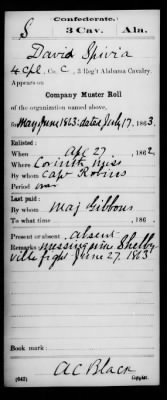 Confederate.
S 3 Cav. Ala.
David Spivia
4 Cpl, Co. C, 3 Reg't Alabama Cavalry.
Appears on
Company Muster Roll
of the organization named above,
for May, June 1863: dated July 17, 1863.
Enlisted:
When Apl 27, 1862.
Where Corinth Miss
By whom Capt Robins
Period war
Last paid:
By whom Maj Gibbons
To what time , 186 .
Present or absent absent
Remarks: missing in Shelby
ville fight June 27. 1863
Book mark:
A C Black
(642) Copyist.